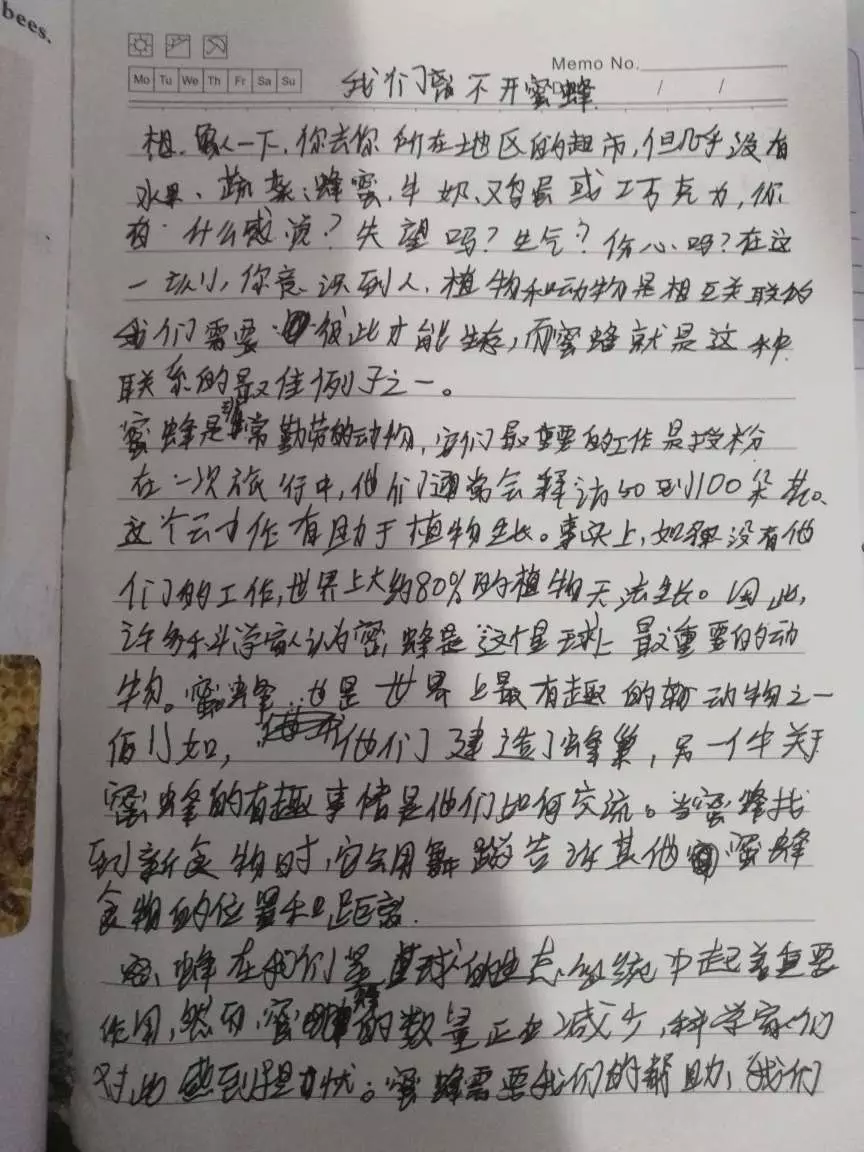 bees.
Memo No.
Mo Tu We Th Fr Sa Su
/ /
我们离不开蜜蜂
想象一下,你去你所在地区的超市,但几乎没有
水果、蔬菜、蜂蜜、牛奶、鸡蛋或巧克力,你
有什么感觉?失望吗?生气?伤心吗?在这
一刻,你意识到人、植物和动物是相互关联的
我们需要彼此才能生存,而蜜蜂就是这种
联系的最佳例子之一。
蜜蜂是非常勤劳的动物,它们最重要的工作是授粉
在一次旅行中,他们通常会释访50到100朵花。
这个工作有助于植物生长。事实上,如果没有他
们的工作,世界上大约80%的植物无法生长。因此,
许多科学家认为蜜蜂是这个星球上最重要的动
物。蜜蜂也是世界上最有趣的动物之一
例如,他们建造了蜂巢,另一件关于
蜜蜂的有趣事情是他们如何交流。当蜜蜂找
到新食物时,它会用舞蹈告诉其他蜜蜂
食物的位置和距离.
蜜蜂在我们星球的生态系统中起着重要
作用,然而,蜜蜂的数量正在减少,科学家们
对此感到担忧。蜜蜂需要我们的帮助、我们